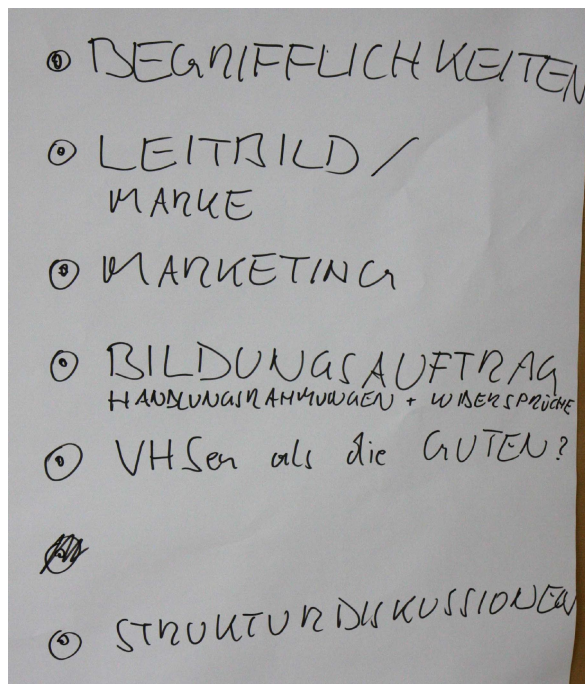 BEGRIFFLICHKEITEN
LEITBILD /
MARKE
MARKETING
BILDUNGSAUFTRAG
HANDLUNGSRAHMUNGEN + WIDERSPRÜCHE
VHSen als die GUTEN?
STRUKTURDISKUSSIONEN